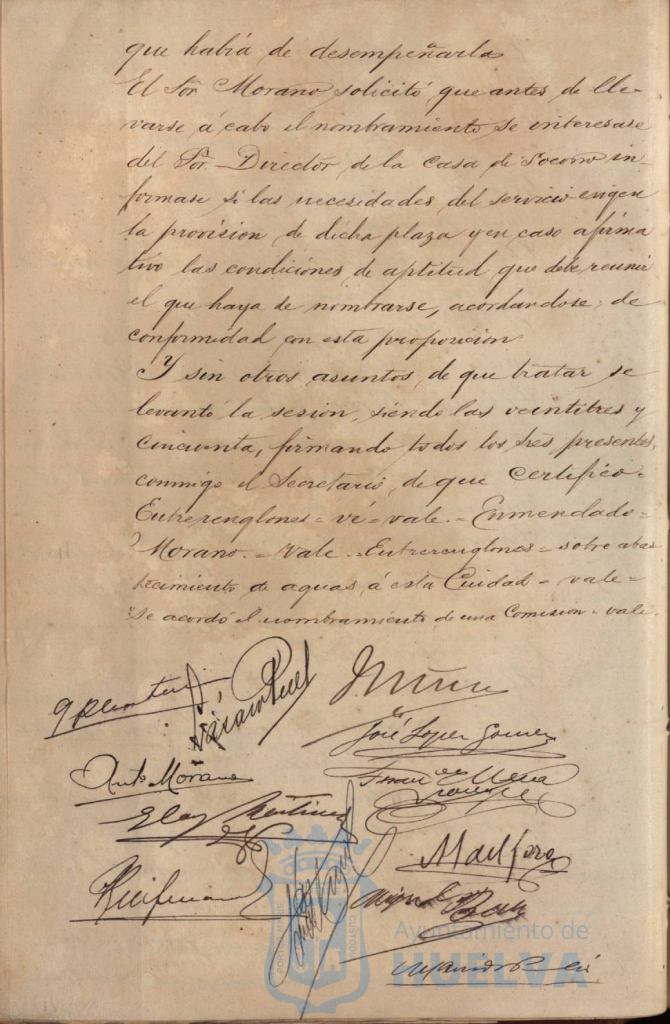 que habia de desempeñarla
El Sor. Morano solicitó que antes de lle-
varse á cabo el nombramiento se interesase
del Sor. Director de la Casa de Socorro in-
formase si las necesidades del servicio exigen
la provision de dicha plaza y en caso afirma
tivo las condiciones de aptitud que debe reunir
el que haya de nombrarse, acordandose de
conformidad con esta proposicion
Y sin otros asuntos de que tratar se
levantó la sesion, siendo las veintitres y
cincuenta, firmando todos los Sres presentes,
conmigo el Secretario, de que certifico-
Entrerenglones = vé = vale. = Enmendado =
Morano. = Vale. = Entrerenglones = sobre abas
tecimiento de aguas á esta Ciudad = vale =
se acordó el nombramiento de una Comision = vale
José Lopez Gomez
Anto. Morano
Eloy Martinez
Ayuntamiento de
HUELVA